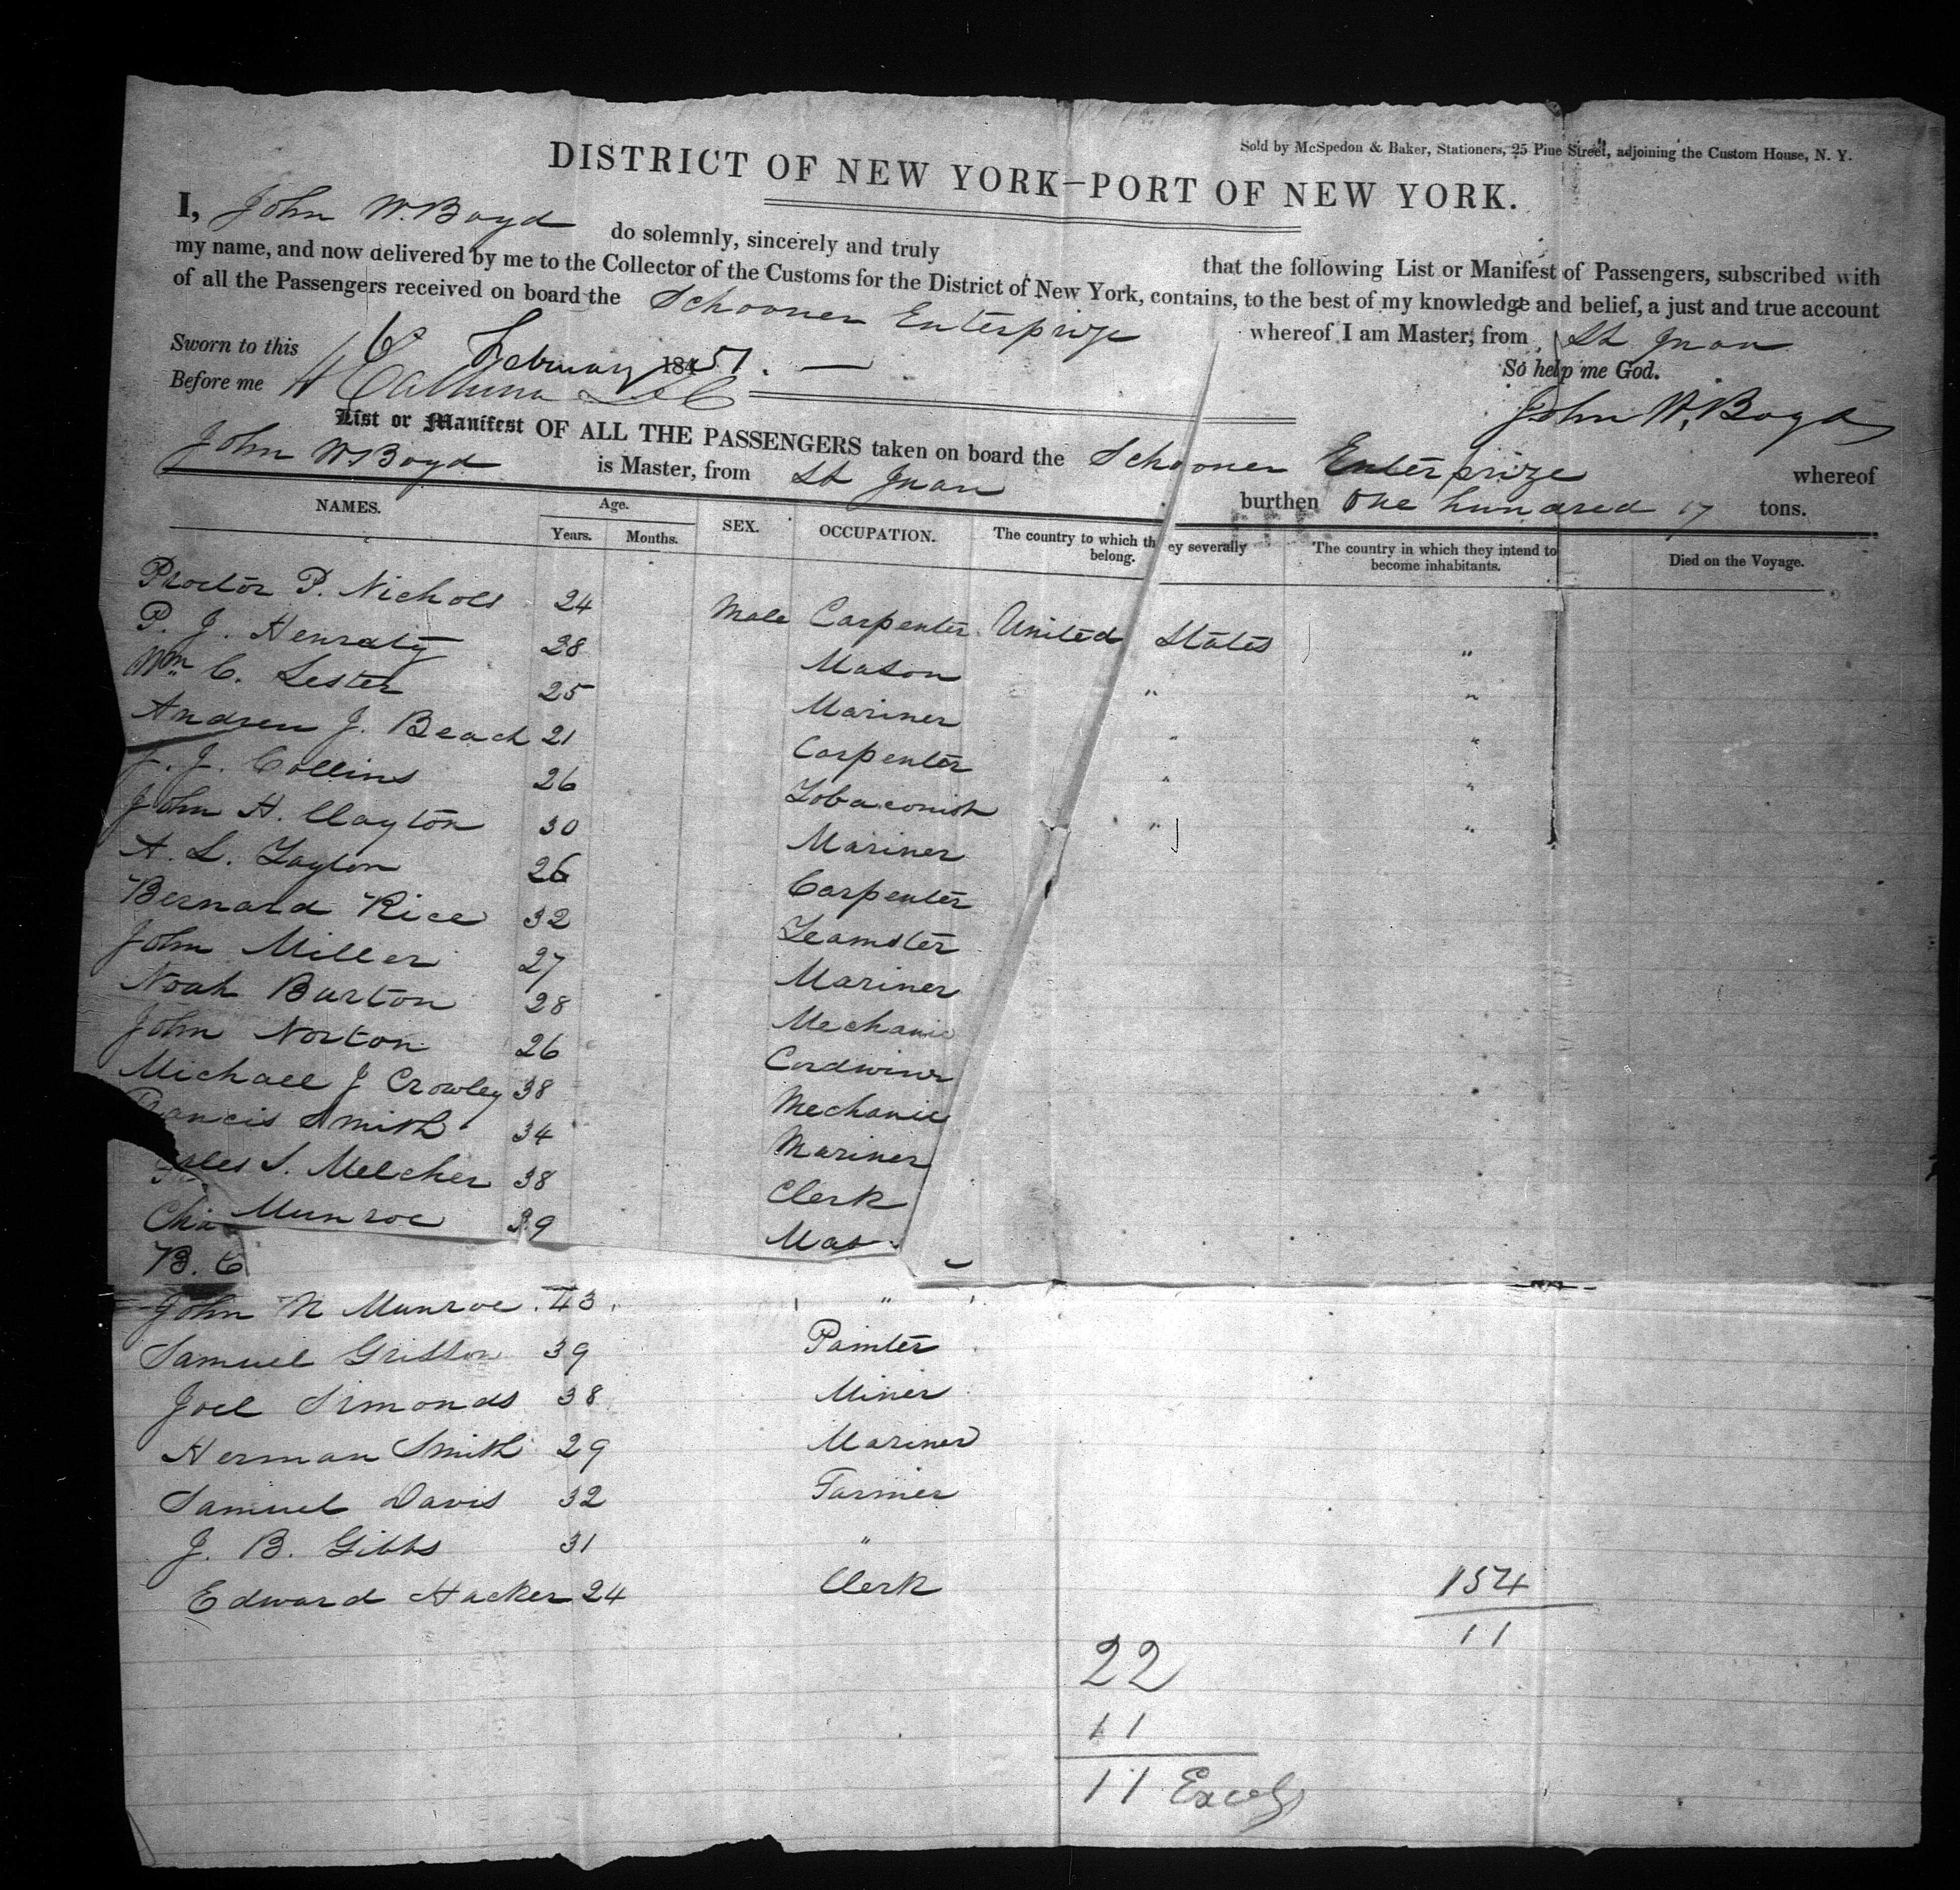 Sold by McSpedon & Baker, Stationers, 25 Pine Street, adjoining the Custom House, N. Y.
DISTRICT OF NEW YORK—PORT OF NEW YORK.
I, John W. Boyd do solemnly, sincerely and truly that the following List or Manifest of Passengers, subscribed with
my name, and now delivered by me to the Collector of the Customs for the District of New York, contains, to the best of my knowledge and belief, a just and true account
of all the Passengers received on board the Schooner Enterprize whereof I am Master, from St Juan
Sworn to this 6 February 1851. So help me God.
Before me John W. Boyd
List or Manifest OF ALL THE PASSENGERS taken on board the Schooner Enterprize whereof
John W. Boyd is Master, from St Juan burthen One hundred 17 tons.
NAMES. Age. SEX. OCCUPATION. The country to which they severally belong. The country in which they intend to become inhabitants. Died on the Voyage.
Years. Months.
Proctor P. Nichols 24 Male Carpenter United States
P. J. Henraty 28 Mason " "
Wm C. Lester 25 Mariner " "
Andrew J. Beach 21 Carpenter " "
J. J. Collins 26 Tobaconist " "
John H. Clayton 30 Mariner "
A. L. Layton 26 Carpenter
Bernard Rice 32 Teamster
John Miller 27 Mariner
Noah Burton 28 Mechanic
John Norton 26 Cordwiner
Michael J Crowley 38 Mechanic
Francis Smith 34 Mariner
les S. Melcher 38 Clerk
Cha Munroe 39 Mas
B. C
John N Munroe 43 "
Samuel Grisson 39 Painter
Joel Simonds 38 Miner
Herman Smith 29 Mariner
Samuel Davis 32 Farmer
J. B. Gibbs 31 "
Edward Hacker 24 Clerk
154
11
22
11
11 Excess